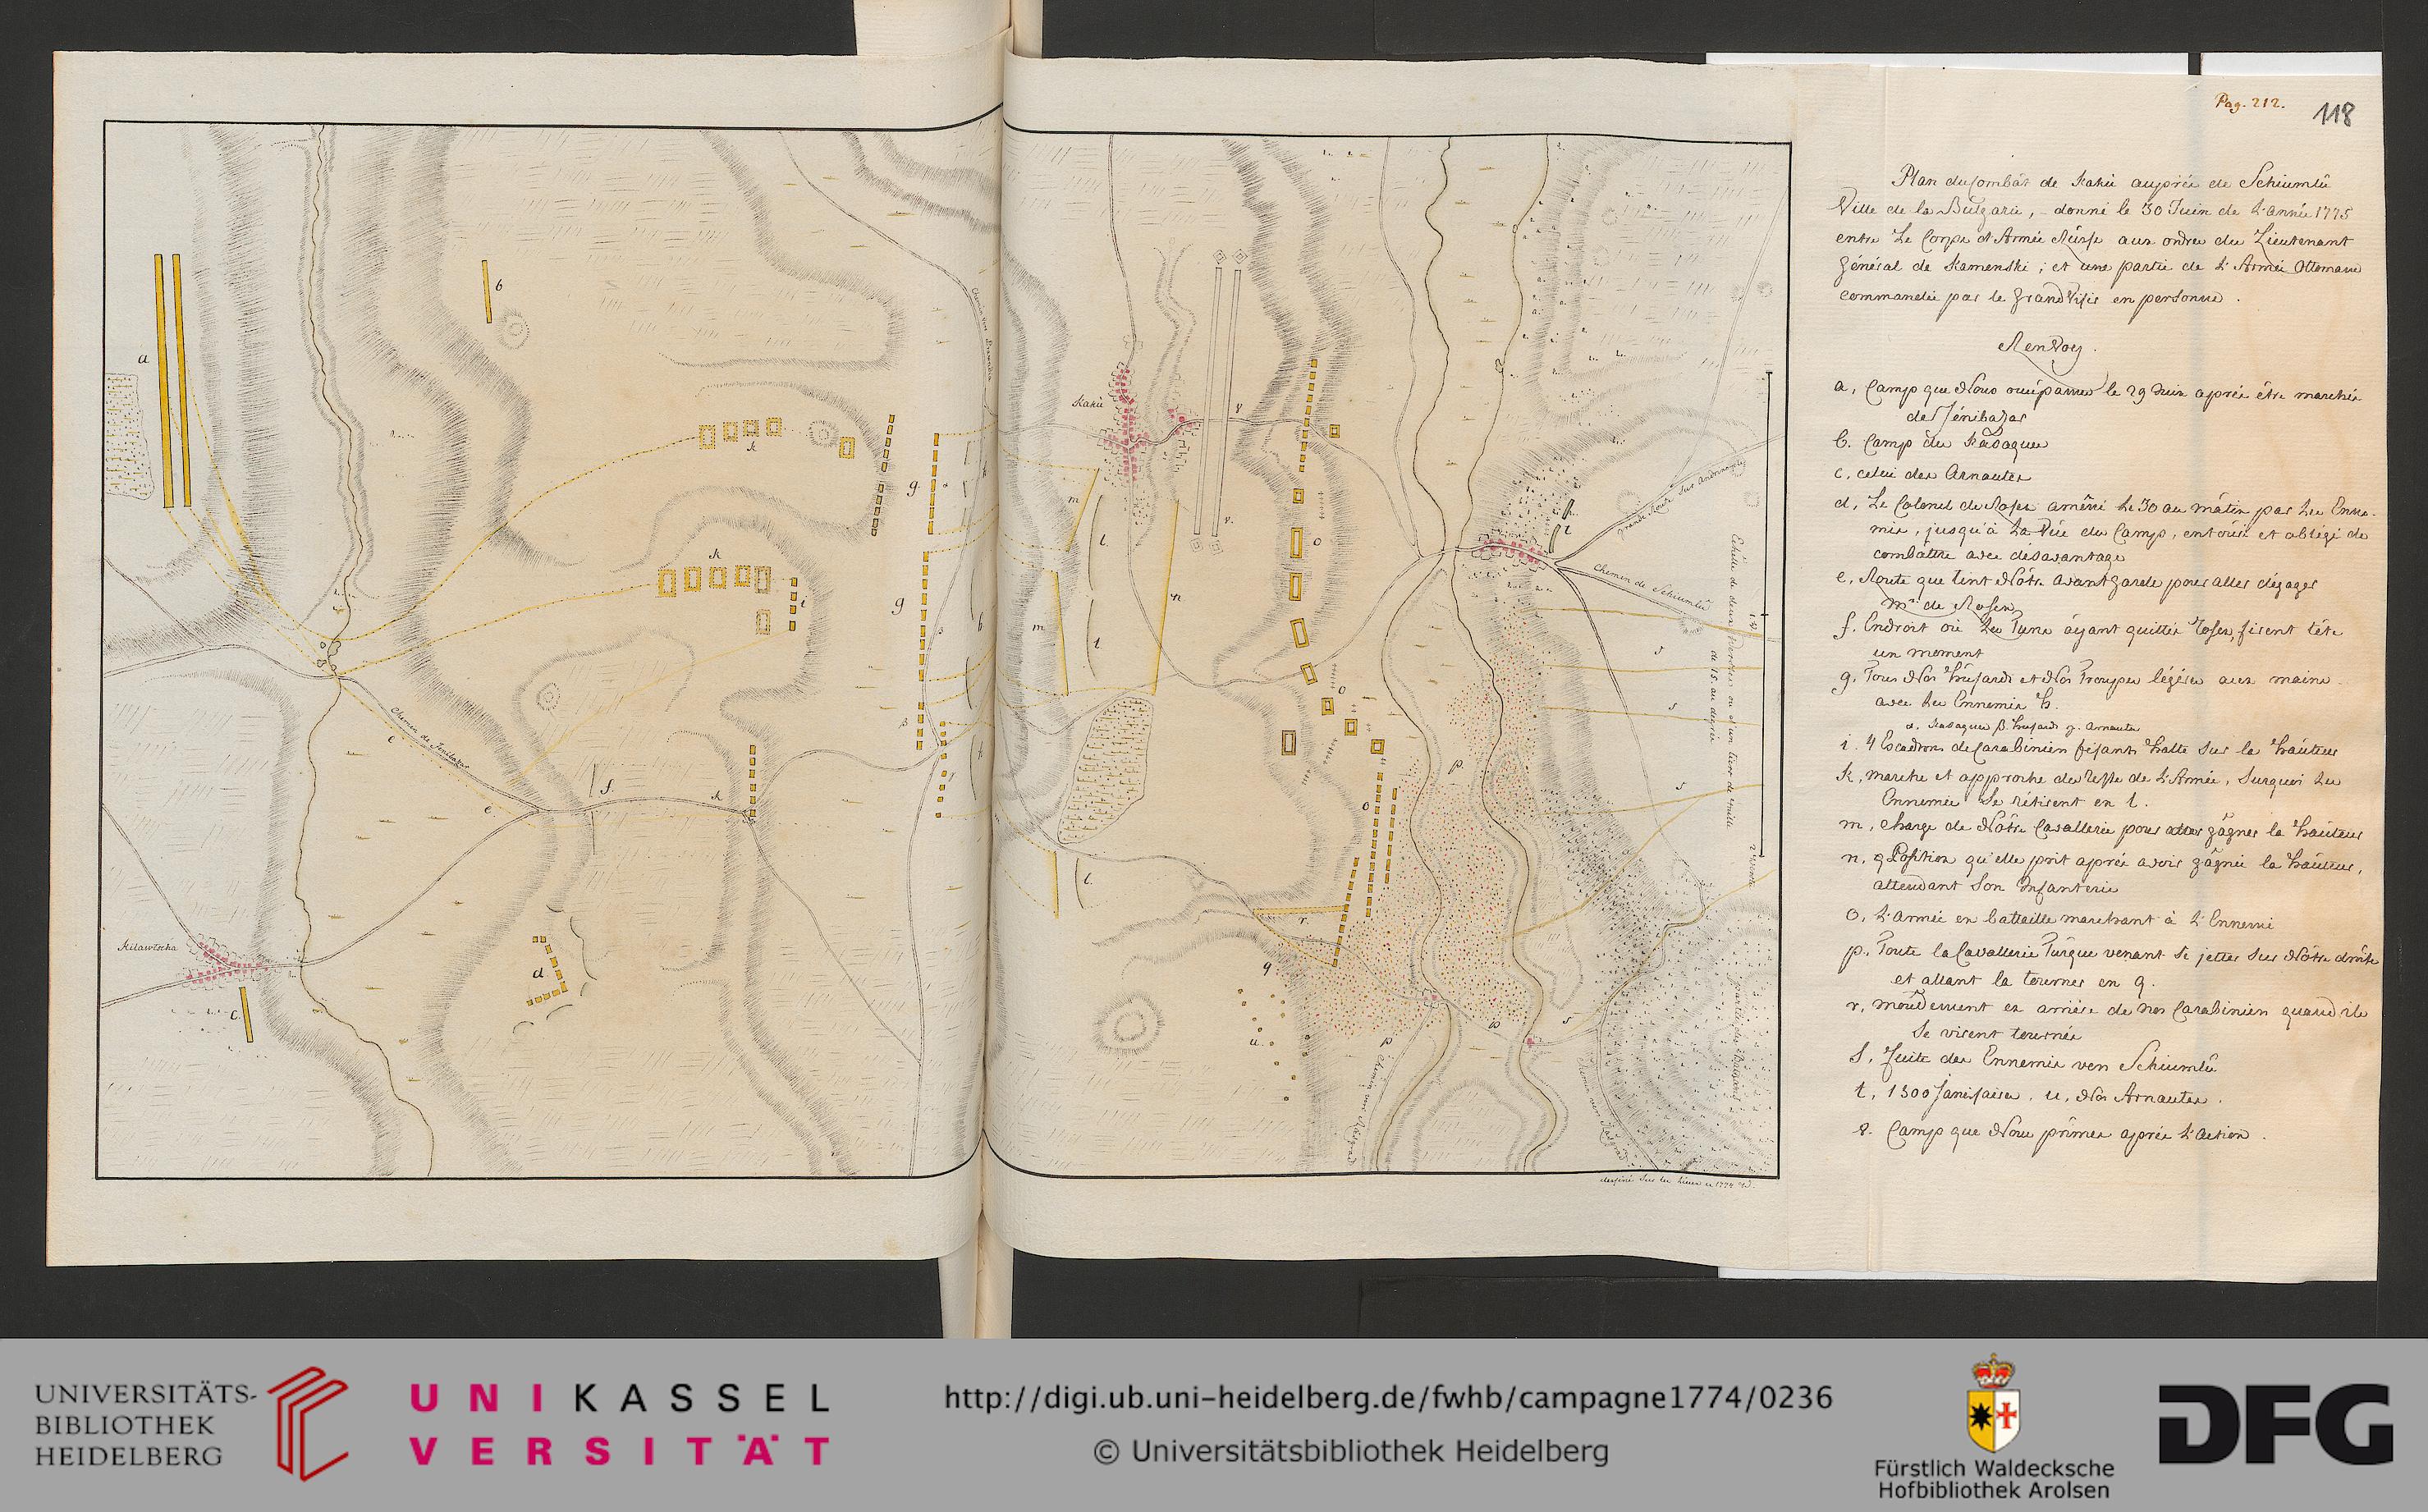 Pag. 212.
118
Plan du Combat de Kakü auprès de Schiumlü
Ville de la Bulgarie, donné le 30 Juin de l'année 1775
entre Le Corps d'Armée Rüsse aux ordres du Lieutenant
Général de Kamenski; et une partie de l'Armée Ottomane
commandée par le Grand Visir en personne.
Renvoy.
a, Camp que Nous occúpames le 29 Juin après être marchés
de Jénibazar
b. Camp des Kasaques
c, celui des Arnautes
d, Le Colonel de Rosen amêné le 30 au mâtin par les Enne-
mis, jusqu'à La Vüe du Camp, entouré et obligé de
combattre avec désavantage
e, Route que tint Nôtre avantgarde pour aller dégager
Mr. de Rosen
f. Endroit où les Turcs ayant quittés Rosen, firent tête
un moment
g. Tous Nos Húsards et Nos Trouppes légéres aux mains
avec les Ennemis h.
α. Kasaques β. Husards γ. Arnautes
i. 4 Escadrons de Carabiniers fesants halte sur la hauteur
k, marche et approche du reste de l'Armée, surquoi les
Ennemis se rétirent en l.
m, charge de Nôtre Cavallerie pour gâgner la hauteur
n, Position qu'elle prit après avoir gâgnée la hauteur,
attendant son Infanterie
o, L'Armée en battaille marchant à l'Ennemi
p, Toute la Cavallerie Turque venant se jetter sur Nôtre droite
et allant la tourner en q.
r, mouvement en arriére de nos Carabiniers quand ils
se virent tournés
s, Fuite des Ennemis vers Schiumlü
t, 1500 Janissaires. u, Nos Arnautes.
8. Camp que Nous primes après l'action.
a
b
Kakü
k
g
m
l
n
o
i
h
t
Grande Route sur Andrinople
Chemin de Schiumlü
Echelle de deux Verstes ou d'un tiers de mille
de 15. au degrée
Chemin de Jenibazar
e
f
p
s
Kilawtscha
c
d
r
q
u.
Chemin vers Rasgrad
dessiné sur les lieux en 1774
UNIVERSITÄTS-
BIBLIOTHEK
HEIDELBERG
UNIKASSEL
VERSITÄT
http://digi.ub.uni-heidelberg.de/fwhb/campagne1774/0236
© Universitätsbibliothek Heidelberg
Fürstlich Waldecksche
Hofbibliothek Arolsen
DFG